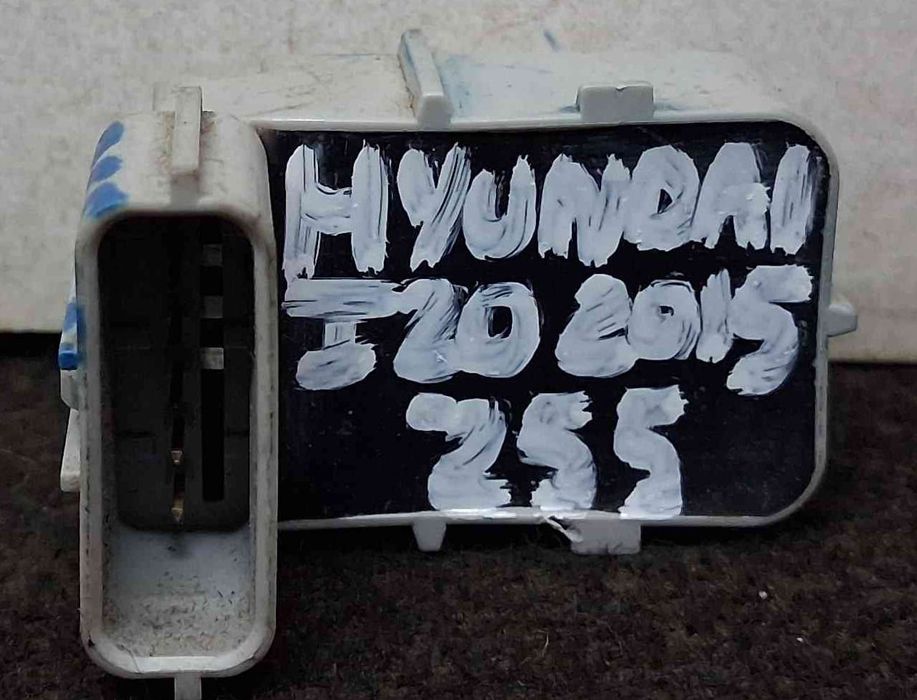 HYUNDAI
I20 2015
255